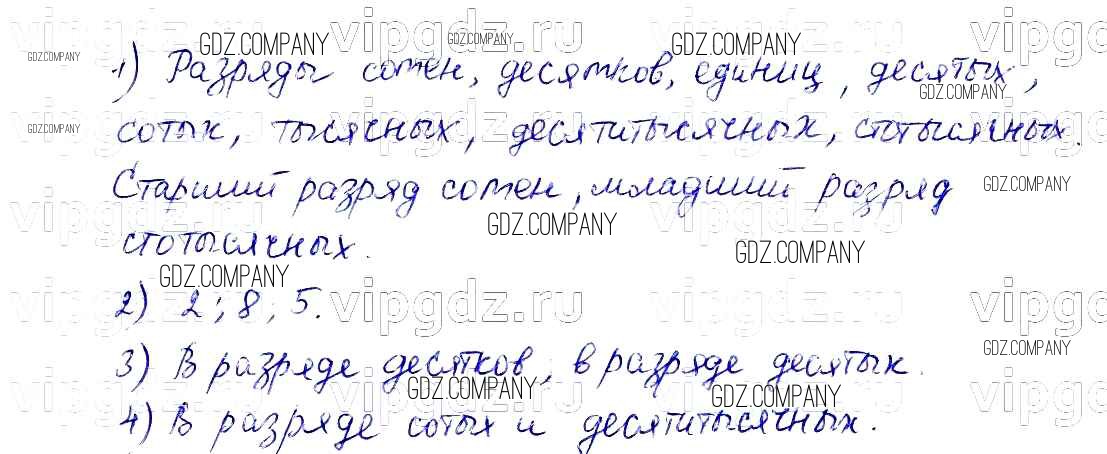 1) Разряды сотен, десятков, единиц, десятых,
сотых, тысячных, десятитысячных, стотысячных.
Старший разряд сотен, младший разряд
стотысячных.
2) 2; 8; 5.
3) В разряде десятков, в разряде десятых.
4) В разряде сотых и десятитысячных.
GDZ.COMPANY
vipgdz.ru